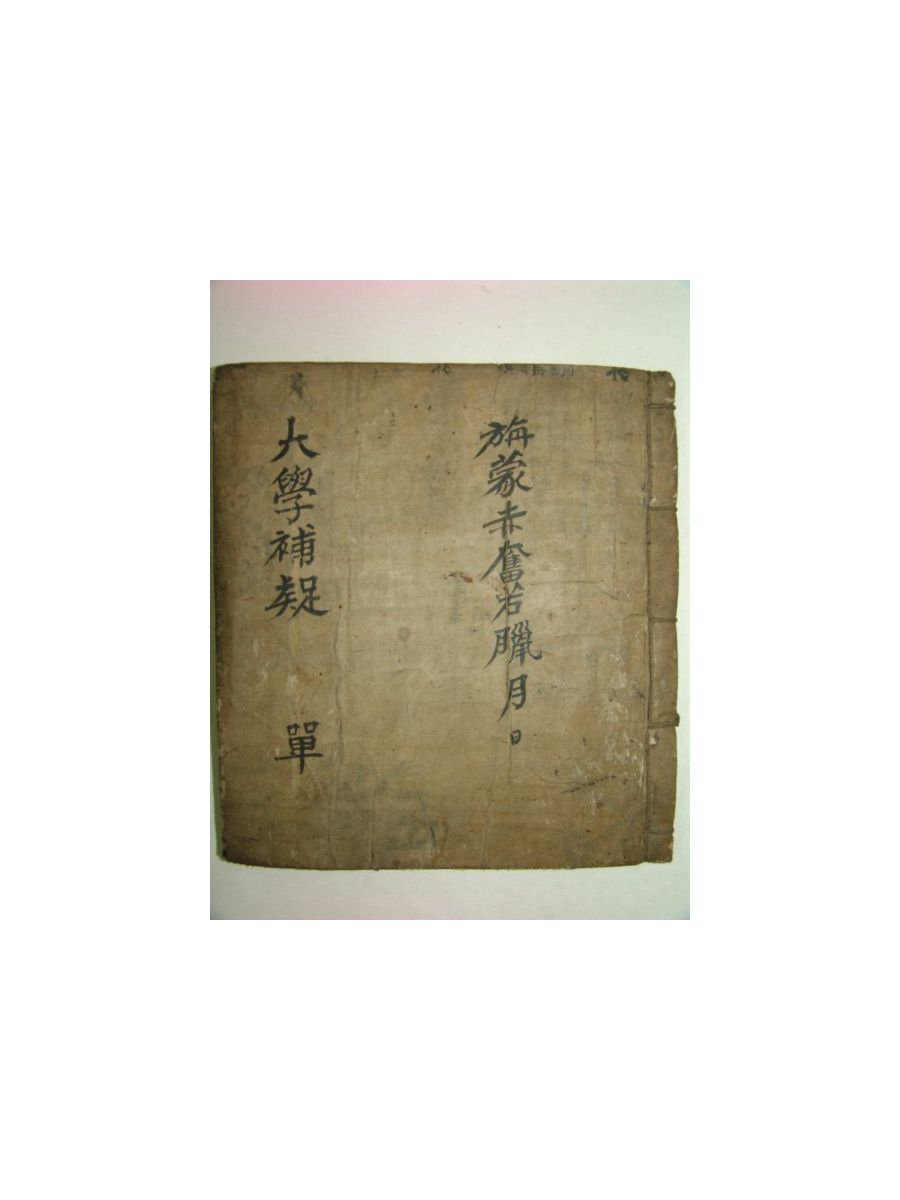 旃蒙赤奮若臘月 日
大學補疑 單